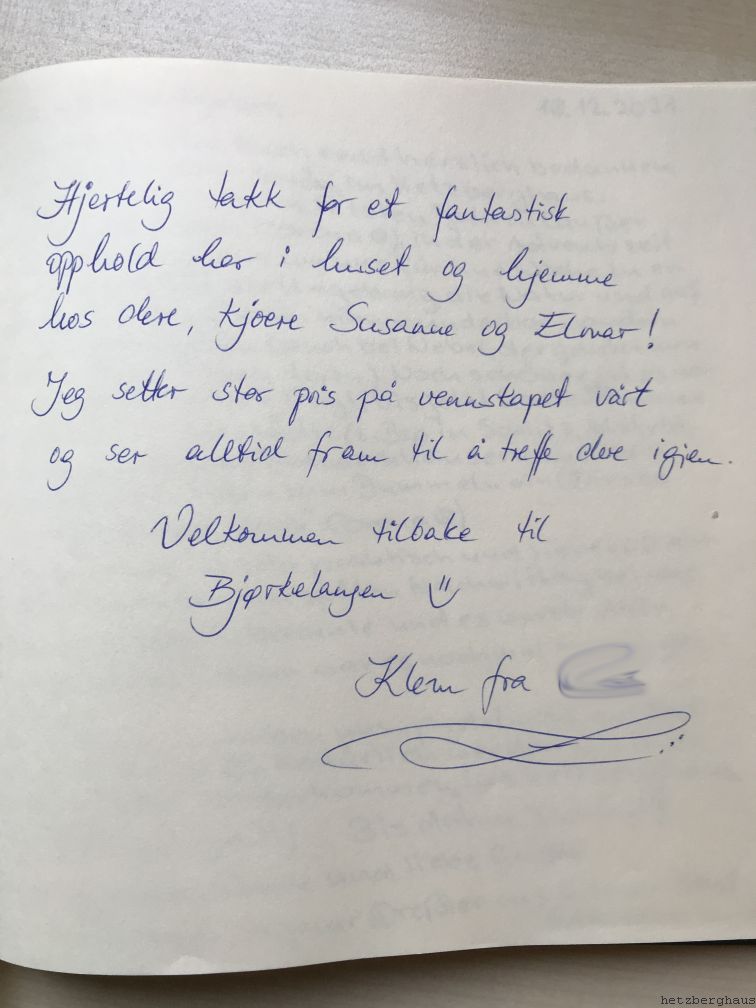 Hjertelig takk for et fantastisk
opphold her i huset og hjemme
hos dere, kjære Susanne og Elmar!
Jeg setter stor pris på vennskapet vårt
og ser alltid fram til å treffe dere igjen.
Velkommen tilbake til
Bjørkelangen
Klem fra
hetzberghaus